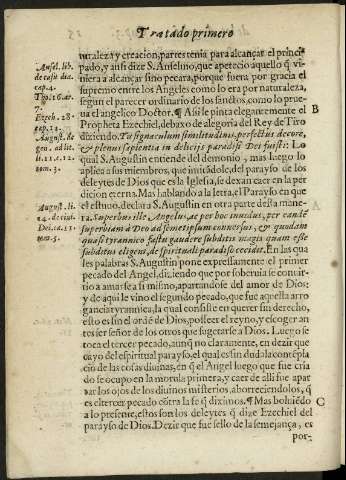 Tratado primero
turaleza y creacion, partes tenia para alcançar el princi
pado, y ansi dize S. Anselmo, que apetecio aquello q̃ vi-
niera a alcançar si no pecara, porque fuera por gracia el
supremo entre los Angeles como lo era por naturaleza,
segun el parecer ordinario de los sanctos, como lo prue-
ua el angelico Doctor. ¶ Assi le pinta elegantemente el
Propheta Ezechiel, debaxo de alegoria del Rey de Tiro
diziendo. Tu signaculum similitudinis, perfectus decore,
& plenus sapientia in delicijs paradisi Dei fuisti: Lo
qual S. Augustin entiende del demonio, mas luego lo
aplica a sus miembros, que incitãdole, del parayso de los
deleytes de Dios que es la Iglesia, se dexan caer en la per
dicion eterna. Mas hablando a la letra, el Parayso en que
el estuuo, declara S. Augustin en otra parte desta mane-
ra. Superbus ille Angelus, ac per hoc inuidus, per eandẽ
superbiam à Deo ad semetipsum conuersus, & quodam
quasi tyrannico fastu gaudere subditis magis quam esse
subditus eligens, de spirituali paradiso cecidit. En las qua
les palabras S. Augustin pone expressamente el primer
pecado del Angel, diziendo que por soberuia se conuir-
tio a amarse a si mismo, apartandose del amor de Dios:
y de aqui le vino el segundo pecado, que fue aquesta arro
gancia tyrannica, la qual consiste en querer sin derecho,
esto es sin el ordẽ de Dios, posseer el reyno, y escoger an
tes ser señor de los otros que sugetarse a Dios. Luego se
toca el tercer pecado, aunq̃ no claramente, en dezir que
cayo del espiritual parayso, el qual es sin duda la cõtẽpla
cio de las cosas diuinas, en q̃ el Angel luego que fue cria
do se ocupo en la morula primera, y caer de alli fue apar
tar los ojos de los diuinos misterios, aborreciendolos, q̃
es el tercer pecado cõtra la fe q̃ diximos. ¶ Mas boluiẽdo
a lo presente, estos son los deleytes q̃ dize Ezechiel del
parayso de Dios. Dezir que fue sello de la semejança, es
por-
Ansel. lib.
de casu dia.
cap. 4.
Ezech. 28.
August. li.
B
A
C